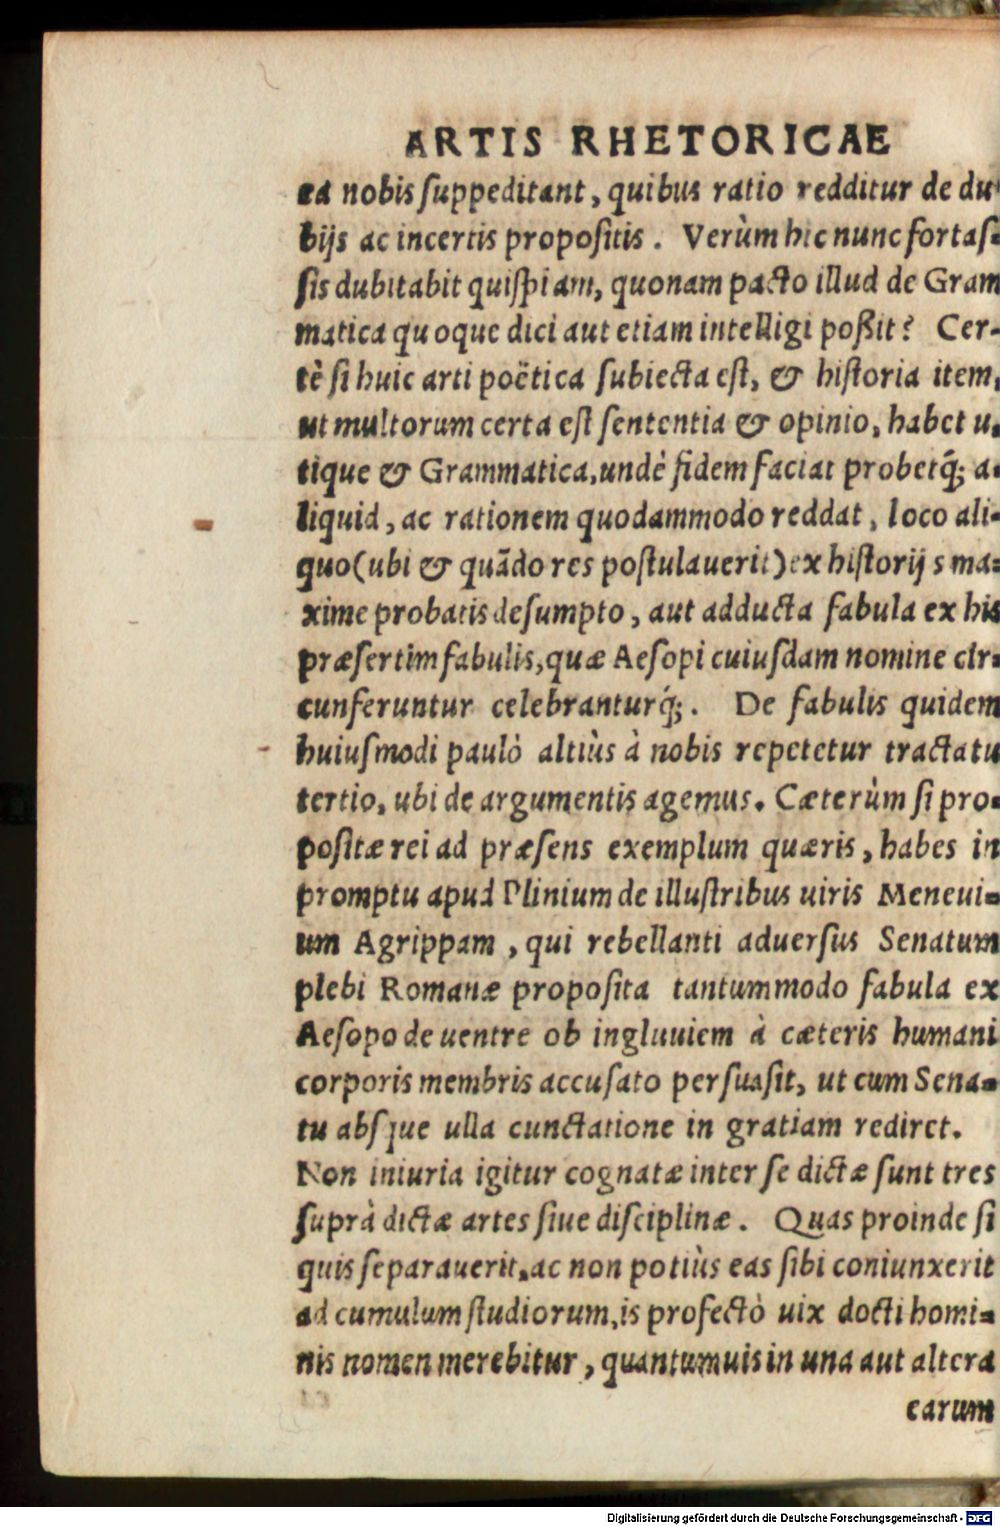 ARTIS RHETORICAE
ea nobis ſuppeditant, quibus ratio redditur de du-
bijs ac incertis propoſitis. Verùm hic nunc fortaſ-
ſis dubitabit quiſpiam, quonam pacto illud de Gram
matica quoque dici aut etiam intelligi poßit? Cer-
tè ſi huic arti poëtica ſubiecta eſt, & hiſtoria item,
ut multorum certa eſt ſententia & opinio, habet u-
tique & Grammatica, undè fidem faciat probetq́; a-
liquid, ac rationem quodammodo reddat, loco ali-
quo (ubi & quãdo res poſtulauerit) ex hiſtorijs ma-
xime probatis deſumpto, aut adducta fabula ex his
præſertim fabulis, quæ Aeſopi cuiuſdam nomine cir-
cunferuntur celebranturq́;. De fabulis quidem
huiuſmodi paulò altiùs à nobis repetetur tractatu
tertio, ubi de argumentis agemus. Cæterùm ſi pro-
poſitæ rei ad præſens exemplum quæris, habes in
promptu apud Plinium de illuſtribus uiris Meneui-
um Agrippam, qui rebellanti aduerſus Senatum
plebi Romanæ propoſita tantummodo fabula ex
Aeſopo de uentre ob ingluuiem à cæteris humani
corporis membris accuſato perſuaſit, ut cum Sena-
tu abſque ulla cunctatione in gratiam rediret.
Non iniuria igitur cognatæ inter ſe dictæ ſunt tres
ſuprà dictæ artes ſiue diſciplinæ. Quas proinde ſi
quis ſeparauerit, ac non potiùs eas ſibi coniunxerit
ad cumulum ſtudiorum, is profectò uix docti homi-
nis nomen merebitur, quantumuis in una aut altera
earum
Digitalisierung gefördert durch die Deutsche Forschungsgemeinschaft - DFG